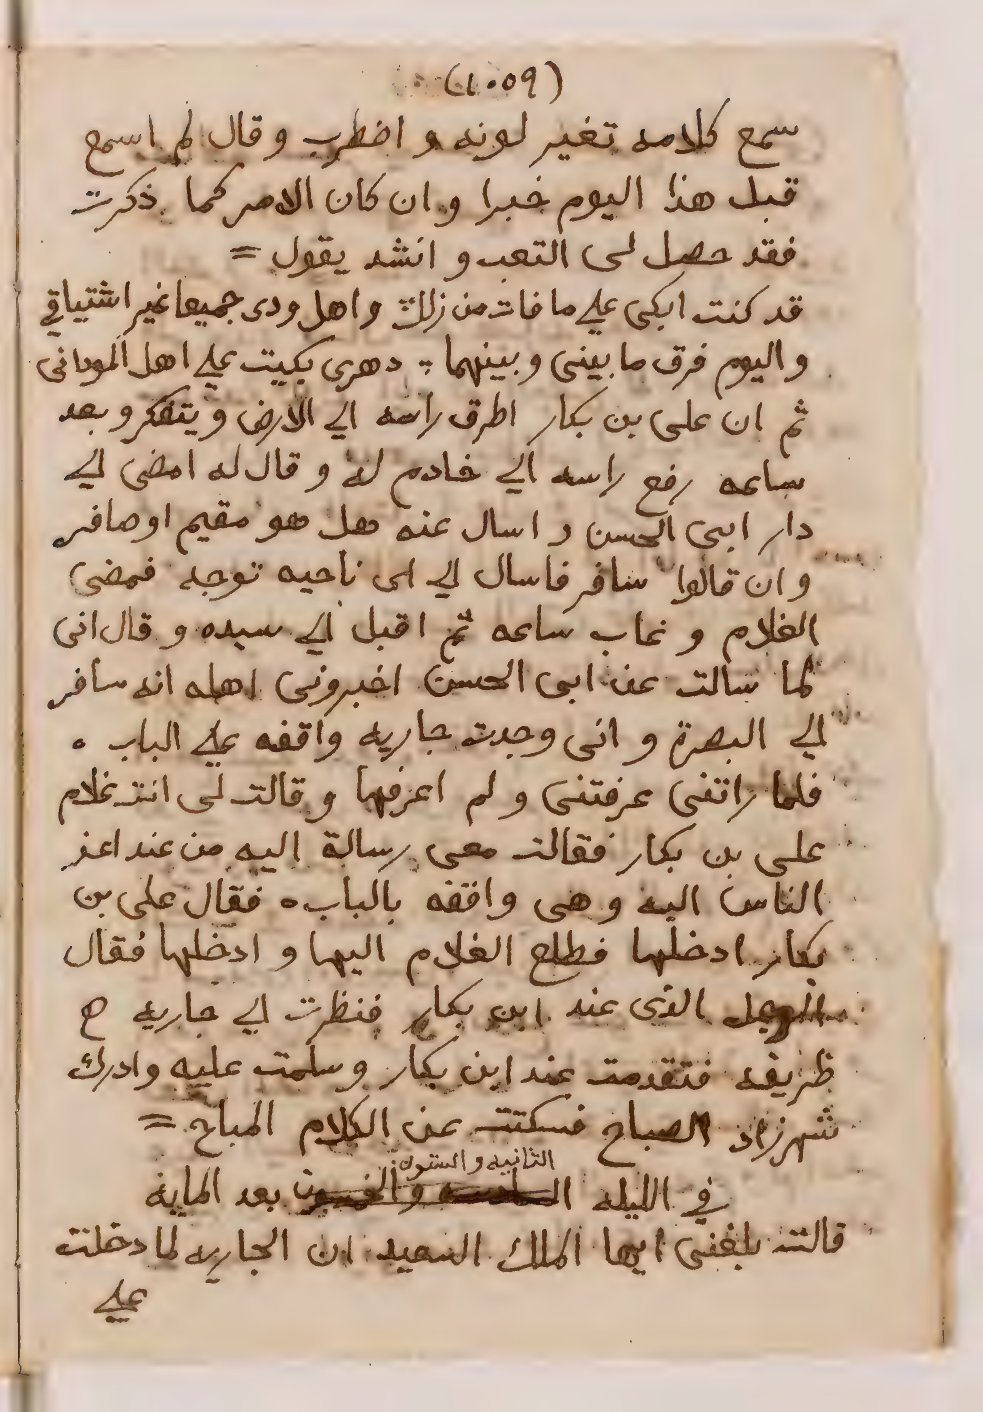 (١٠٥٩)
سمع كلامه تغير لونه و اضطرب و قال لم اسمع
قبل هذا اليوم خبرا و ان كان الامر كما ذكرت
فقد حصل لى التعب و انشد يقول =
قد كنت ابكى على ما فات من زلل و اهل ودى جميعا غير اشتياقي
و اليوم فرق ما بينى و بينهما دهرى بكيت على اهل
ثم ان على بن بكار اطرق راسه الي الارض و يتفكر و بعد
ساعه رفع راسه الي خادم له و قال له امضى الي
دار ابى الحسن و اسال عنه هل هو مقيم او صافر
و ان قالوا سافر فاسال الي اى ناحيه توجه فمضى
الغلام و غاب ساعه ثم اقبل الي سيده و قال انى
لما سالت عن ابى الحسن اخبرونى اهله انه سافر
الي البصرة و انى وجدت جاريه واقفه علي الباب ٠
فلما راتنى عرفتنى و لم اعرفها و قالت لى انت غلام
على بن بكار فقالت معى رسالة اليه من عند اعز
الناس اليه و هى واقفه بالباب ٠ فقال على بن
بكار ادخلها فطلع الغلام اليها و ادخلها فقال
الرجل الذى عند ابن بكار فنظرت الي جاريه
ظريفه فتقدمت عند ابن بكار و سلمت عليه و ادرك
شهرزاد الصباح فسكتت عن الكلام المباح =
الثانيه و الستون
في الليله السادسه و الخمسون بعد المايه
قالت بلغنى ايها الملك السعيد ان الجاريه لما دخلت
علي